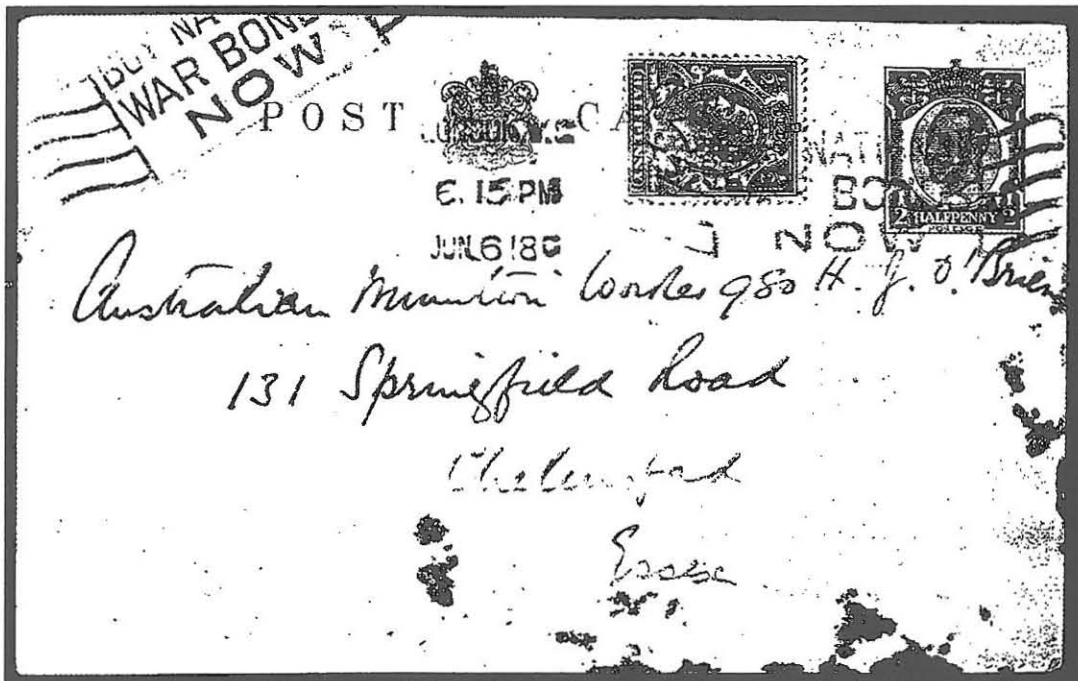 BUY NA
WAR BOND
NOW
POST CA
6.15 PM
JUN 6 18
NATI
BO
NOW
HALFPENNY
POSTAGE
Australian Munition Worker 980 H. J. O'Brien
131 Springfield Road
Chelmsford
Essex